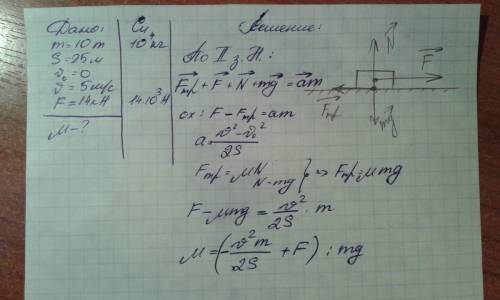 Дано:
m = 10 т
S = 25 м
v₀ = 0
v = 5 м/с
F = 14 кН
м - ?
Си
10⁴ кг
14·10³ Н
Решение:
По II з. Н.:
F⃗тр + F⃗ + N⃗ + mg⃗ = a⃗m
ox: F - Fтр = am
a = (v² - v₀²) / 2S
Fтр = мN
N = mg } => Fтр = мmg
F - мmg = v²/2S · m
м = (- v²m/2S + F) : mg
N⃗
F⃗
F⃗тр
mg⃗